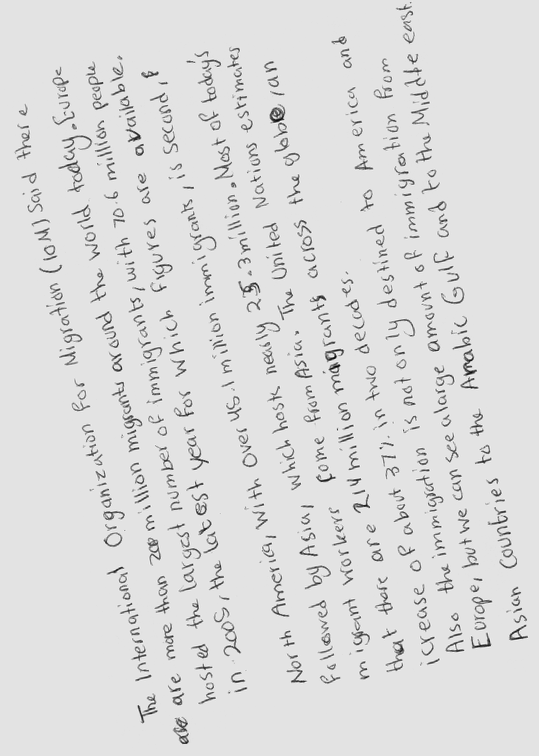 The International Organization for Migration (IOM) said there
are more than 200 million migrants around the world today. Europe
hosted the largest number of immigrants, with 70.6 million people
in 2005, the latest year for which figures are available.
North America, with over 45.1 million immigrants, is second,
followed by Asia, which hosts nearly 25.3 million. Most of today's
migrant workers come from Asia. The United Nations estimates
that there are 214 million migrants across the globe, an
icrease of about 37% in two decades.
Also the immigration is not only destined to America and
Europe, but we can see a large amount of immigration from
Asian Countries to the Arabic Gulf and to the Middle east.